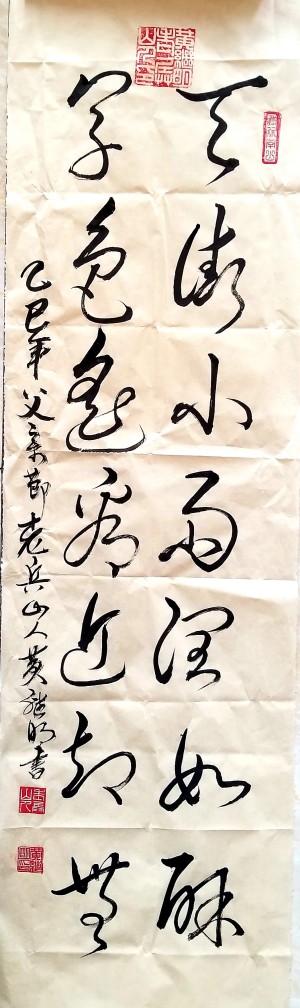 天街小雨润如酥
草色遥看近却无
乙巳年父亲节老兵山人黄继明书